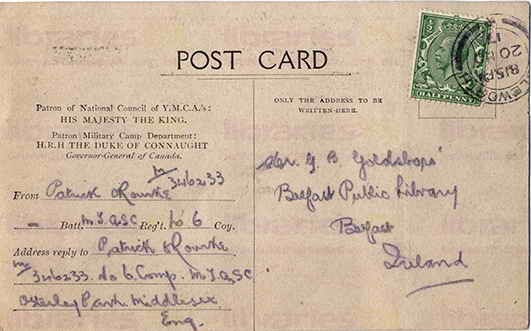 POST CARD
Patron of National Council of Y.M.C.A.'s:
HIS MAJESTY THE KING.
Patron Military Camp Department:
H.R.H THE DUKE OF CONNAUGHT
Governor-General of Canada.
M/346233
From Patrick O'Rourke
- Batt. M.T. ASC Reg't. No 6 Coy.
Address reply to Patrick O'Rourke
M/346233. No 6. Comp. M.T. ASC
Osterley Park Middlesex
Eng.
ONLY THE ADDRESS TO BE
WRITTEN HERE.
G B Goldsboro'
Belfast Public Library
Belfast
Ireland
HALFPENNY
8.15 PM
20
17